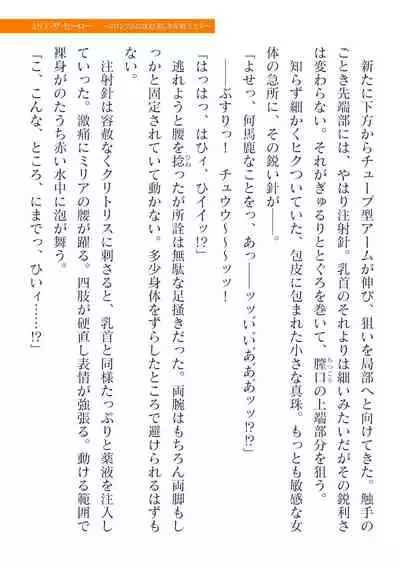 ミリア・ザ・ヒーロー
新たに下方からチューブ型アームが伸び、狙いを局部へと向けてきた。触手の
ごとき先端部には、やはり注射針。乳首のそれよりは細いみたいだがその鋭利さ
は変わらない。それがぎゅるりととぐろを巻いて、膣口の上端部分を狙う。
知らず細かくヒクついていた、包皮に包まれた小さな真珠。もっとも敏感な女
体の急所に、その鋭い針が――。
「よせっ、何馬鹿なことをっ、あっ――ッッいいいあああッッ!?!?」
――ぶすりっ！　チュウウ～～～ッッ！
「はっはっ、はひィ、ひイイッ!?」
逃れようと腰を捻ったが所詮は無駄な足掻きだった。両腕はもちろん両脚もし
っかと固定されていて動かない。多少身体をずらしたところで避けられるはずも
なく。
注射針は容赦なくクリトリスに刺さると、乳首と同様たっぷりと薬液を注入し
ていった。激痛にミリアの腰が躍る。四肢が硬直し表情が強張る。動ける範囲で
裸身がのたうち赤い水中に泡が舞う。
「こ、こんな、ところ、にまでっ、ひいィ……!?」